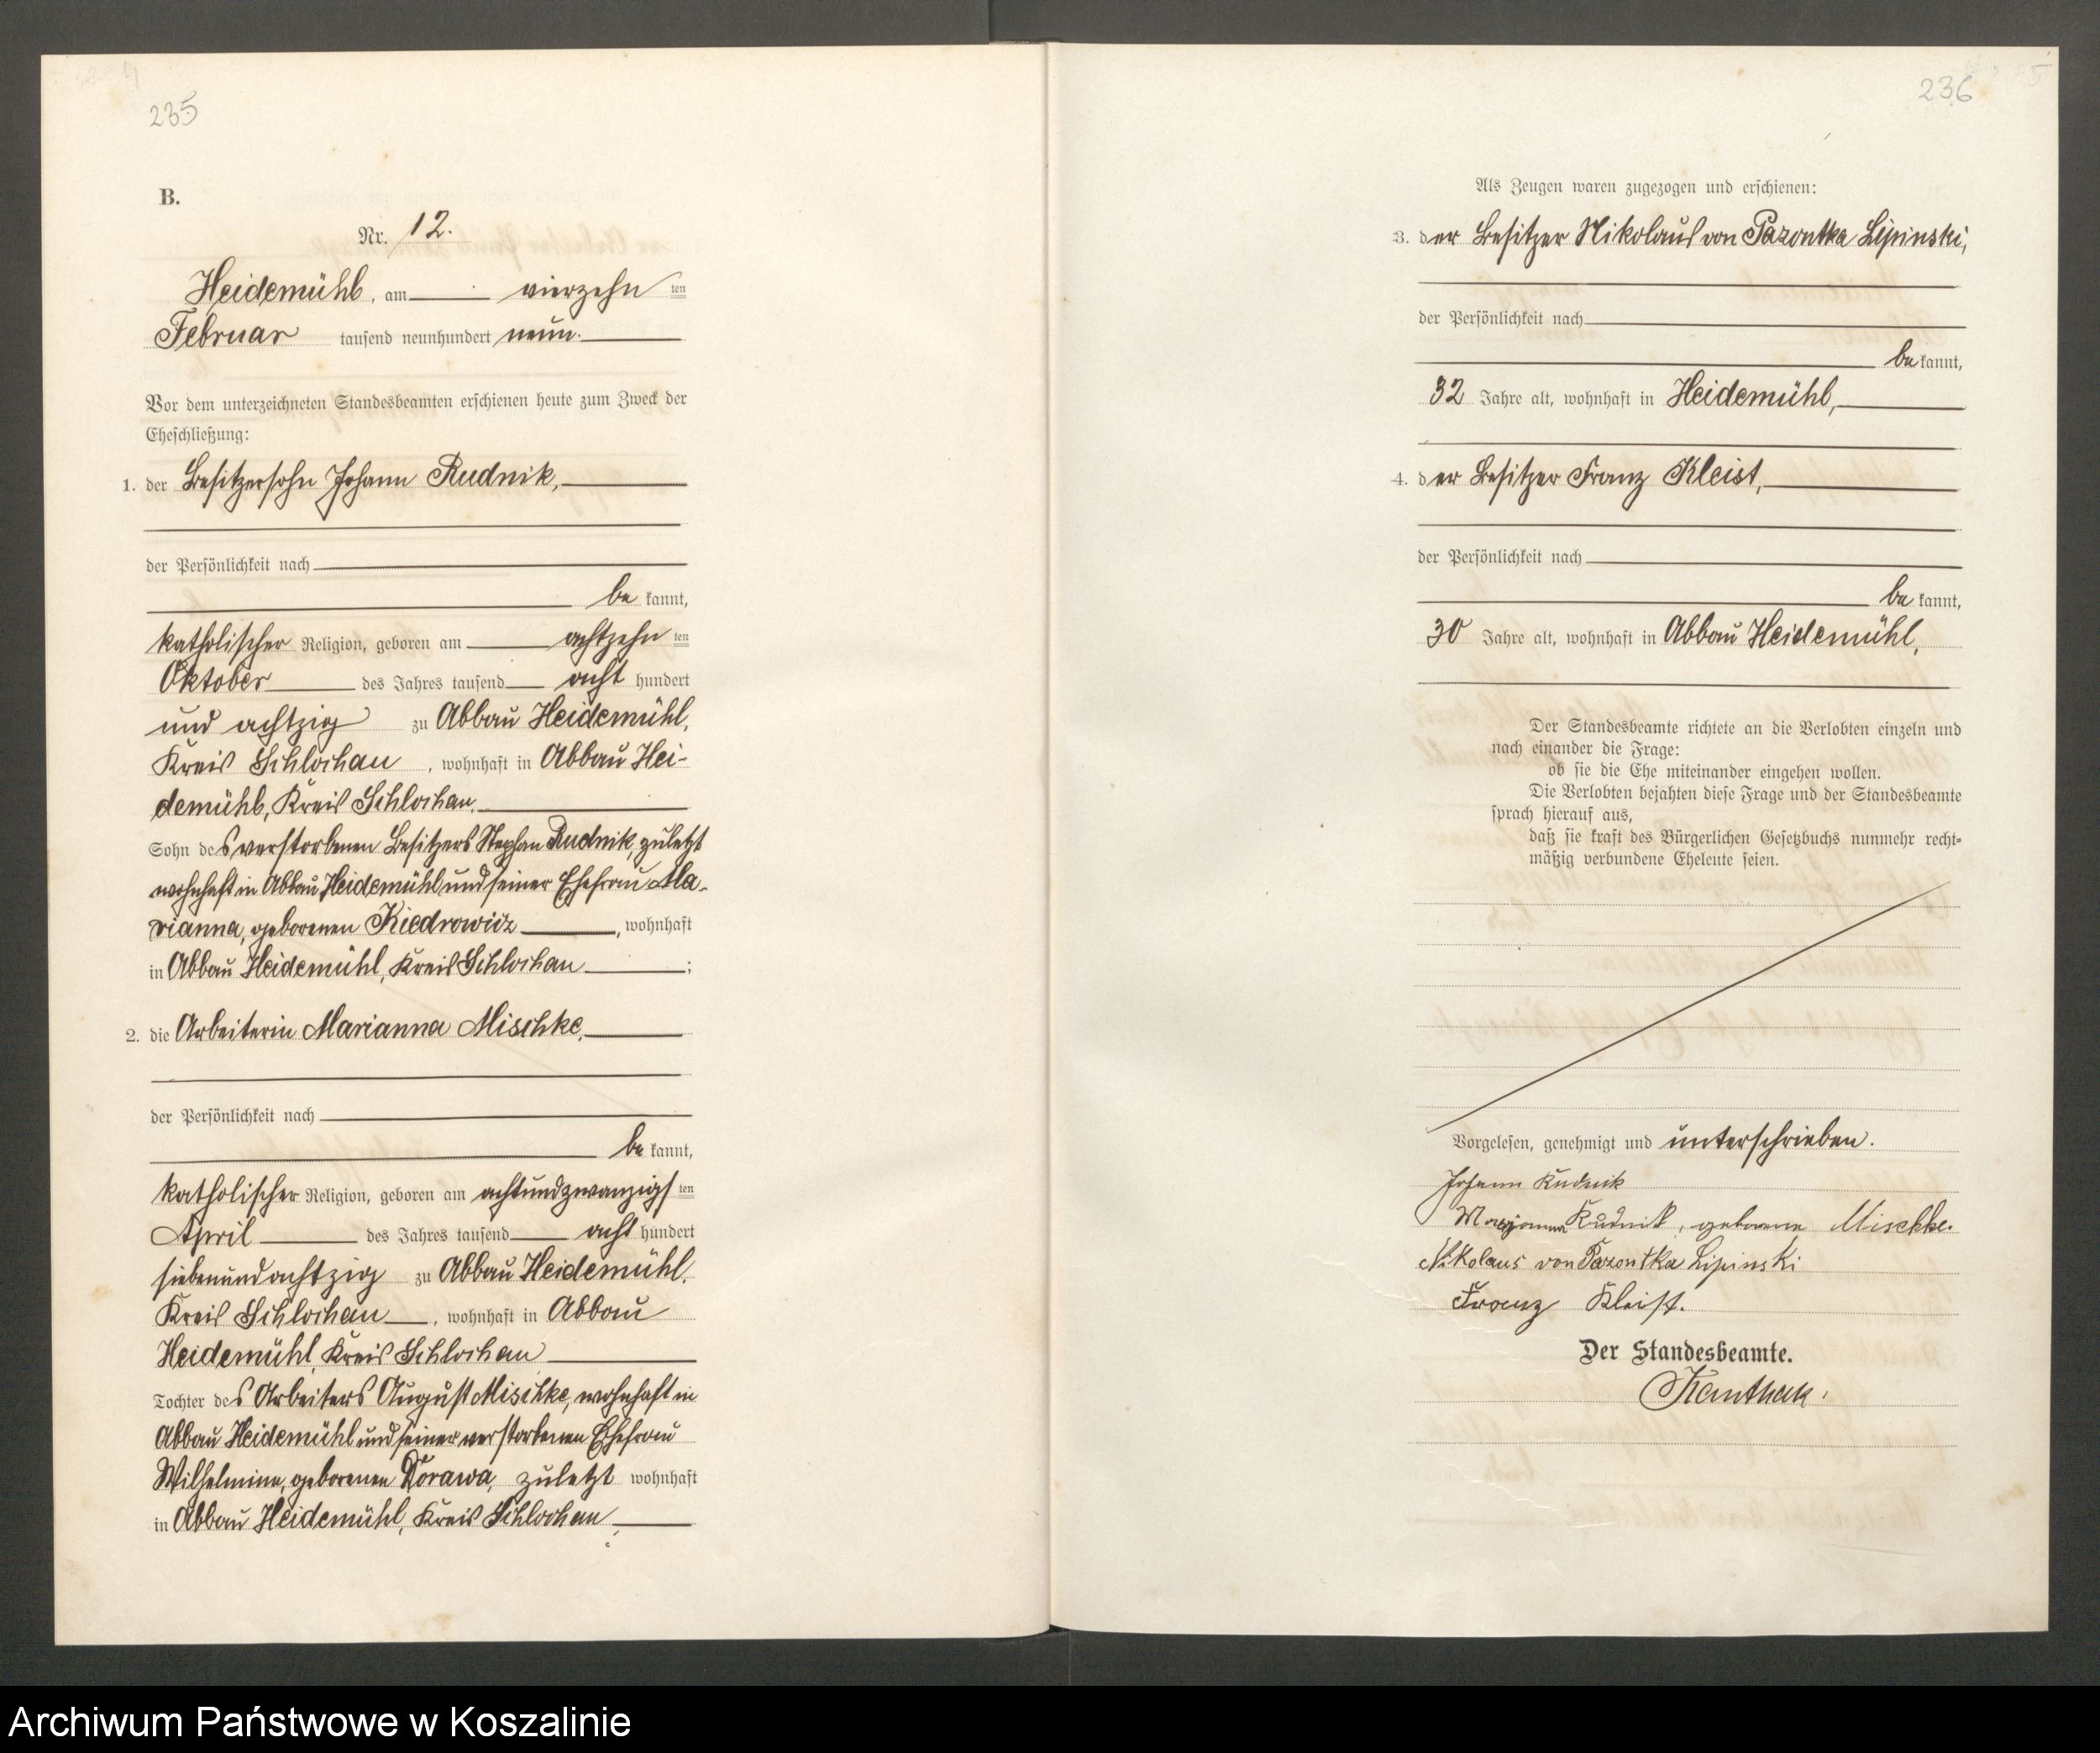 235
B.
Nr. 12.
Heidemühl, am vierzehn ten
Februar tausend neunhundert neun.
Vor dem unterzeichneten Standesbeamten erschienen heute zum Zweck der
Eheschließung:
1. der Besitzersohn Johann Rudnik,
der Persönlichkeit nach
be kannt,
katholischer Religion, geboren am achtzehn ten
Oktober des Jahres tausend acht hundert
und achtzig zu Abbau Heidemühl,
Kreis Schlochau, wohnhaft in Abbau Hei-
demühl, Kreis Schlochau,
Sohn des verstorbenen Besitzers Stephan Rudnik, zuletzt
wohnhaft in Abbau Heidemühl und seiner Ehefrau Ma-
rianna, geborenen Kiedrowicz, wohnhaft
in Abbau Heidemühl, Kreis Schlochau;
2. die Arbeiterin Marianna Mischke,
der Persönlichkeit nach
be kannt,
katholischer Religion, geboren am achtundzwanzigs ten
April des Jahres tausend acht hundert
siebenundachtzig zu Abbau Heidemühl,
Kreis Schlochau, wohnhaft in Abbau
Heidemühl, Kreis Schlochau
Tochter des Arbeiters August Mischke, wohnhaft in
Abbau Heidemühl und seiner verstorbenen Ehefrau
Wilhelmine, geborenen Worawa, zuletzt wohnhaft
in Abbau Heidemühl, Kreis Schlochau
236
Als Zeugen waren zugezogen und erschienen:
3. der Besitzer Nikolaus von Pazontka Lipinski,
der Persönlichkeit nach
be kannt,
32 Jahre alt, wohnhaft in Heidemühl,
4. der Besitzer Franz Kleist,
der Persönlichkeit nach
be kannt,
30 Jahre alt, wohnhaft in Abbau Heidemühl,
Der Standesbeamte richtete an die Verlobten einzeln und
nach einander die Frage:
ob sie die Ehe miteinander eingehen wollen.
Die Verlobten bejahten diese Frage und der Standesbeamte
sprach hierauf aus,
daß sie kraft des Bürgerlichen Gesetzbuchs nunmehr recht-
mäßig verbundene Eheleute seien.
Vorgelesen, genehmigt und unterschrieben.
Johann Rudnik
Marjanna Rudnik, geborene Mischke.
Nikolaus von Pazontka Lipinski
Franz Kleist.
Der Standesbeamte.
Kanthak.
Archiwum Państwowe w Koszalinie